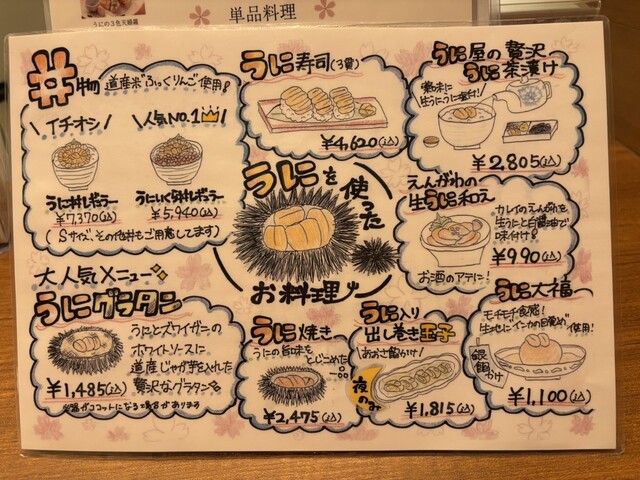 うにの3色天婦羅
単品料理
丼物 道産米ふっくりんこ使用!
\ イチオシ /
うに丼レギュラー
¥7,370(込)
\ 人気NO.1 /
うにいくら丼レギュラー
¥5,940(込)
(Sサイズ、その他丼もご用意してます)
うに寿司(3貫)
¥4,620(込)
うに屋の贅沢
うに茶漬け
¥2,805(込)
うにを使った
お料理
えんがわの
生うに和え
カレイのえんがわを
生うにと白醤油で
味付け!
¥990(込)
お酒のアテに!
大人気メニュー
うにグラタン
うにとズワイガニの
ホワイトソースに
道産じゃが芋を入れた
贅沢なグラタン
¥1,485(込)
※器がココットになる場合があります
うに焼き
うにの旨味を
とじこめた
¥2,475(込)
うに入り
出し巻き玉子
(あおさ餡かけ)
夜のみ
¥1,815(込)
うに大福
モチモチ食感!
生地にインカのめざめ使用!
銀餡かけ
¥1,100(込)